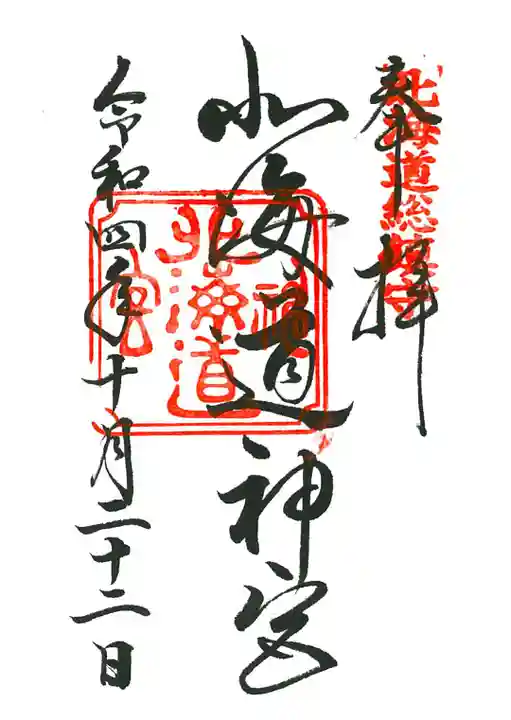 奉拝
北海道総鎮守
北海道神宮
北海道神宮
令和四年十月二十二日